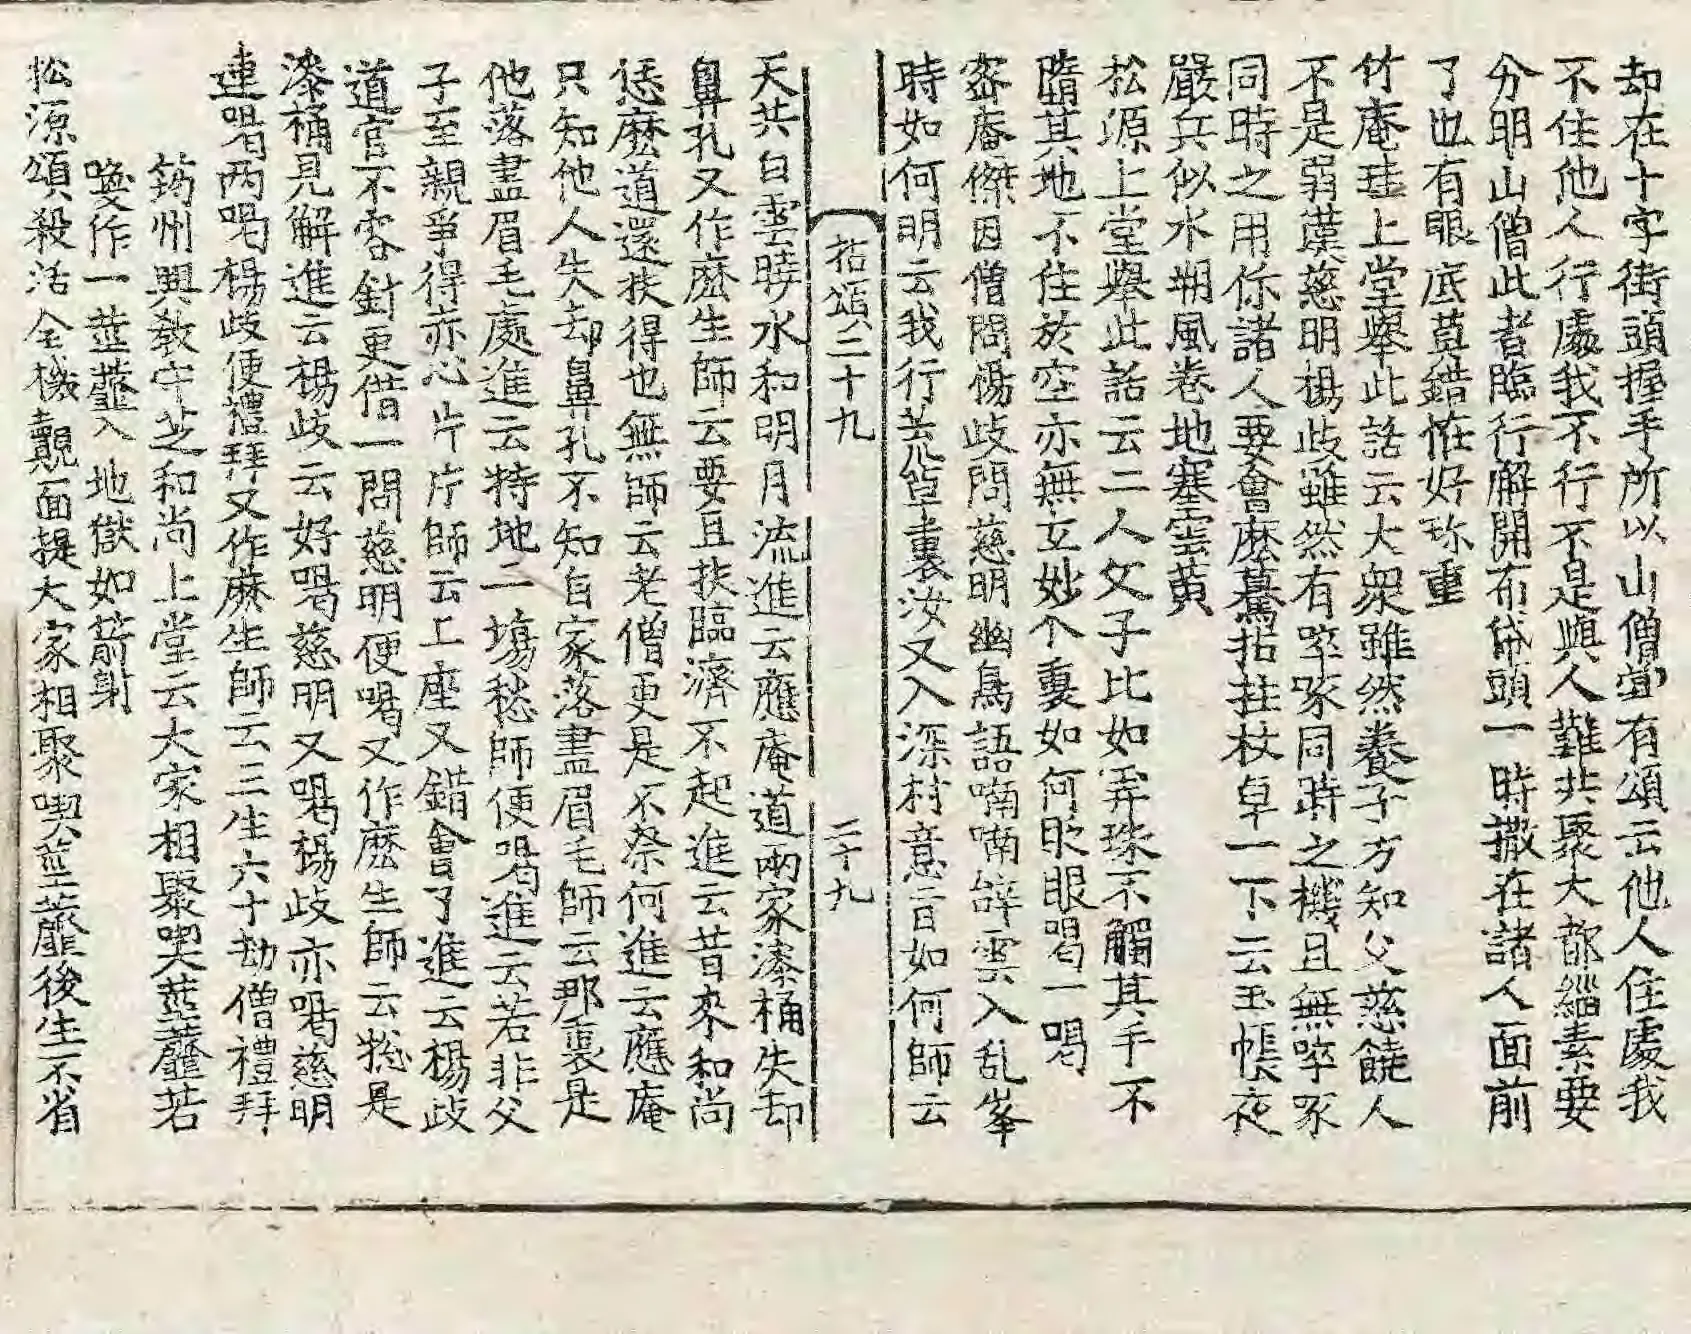 却在十字街頭握手所以山僧當有頌云他人住處我
不住他人行處我不行不是與人難共聚大都緇素要
分明山僧此者臨行解開布帒頭一時撒在諸人面前
了也有眼底莫錯恠好珎重
竹庵珪上堂舉此話云大衆雖然養子方知父慈饒人
不是弱漢慈明楊歧雖然有啐啄同時之機且無啐啄
同時之用你諸人要會麽驀拈拄杖卓一下云玉帳夜
嚴兵似水朔風卷地塞雲黄
松源上堂舉此話云二人父子比如弄珠不觸其手不
墮其地不住於空亦無立妙个裏如何眨眼喝一喝
密庵傑因僧問楊歧問慈明幽鳥語喃喃辞雲入乱峯
時如何明云我行荒草裏汝又入深村意旨如何師云
拈頌二十九 二十九
天共白雲曉水和明月流進云應庵道兩家漆桶失却
鼻孔又作麽生師云要且扶臨濟不起進云昔來和尚
恁麽道還扶得也無師云老僧更是不祭何進云應庵
只知他人失却鼻孔不知自家落盡眉毛師云那裏是
他落盡眉毛處進云特地一塲愁師便喝進云若非父
子至親爭得赤心片片師云上座又錯會了進云楊歧
道官不容針更借一問慈明便喝又作麽生師云揔是
漆桶見解進云楊歧云好喝慈明又喝楊歧亦喝慈明
連喝两喝楊歧便禮拜又作麽生師云三生六十劫僧禮拜
筠州興敎守芝和尚上堂云大家相聚喫莖虀若
喚作一莖虀入地獄如箭射
松源頌殺活全機覿面提大家相聚喫莖虀後生不省